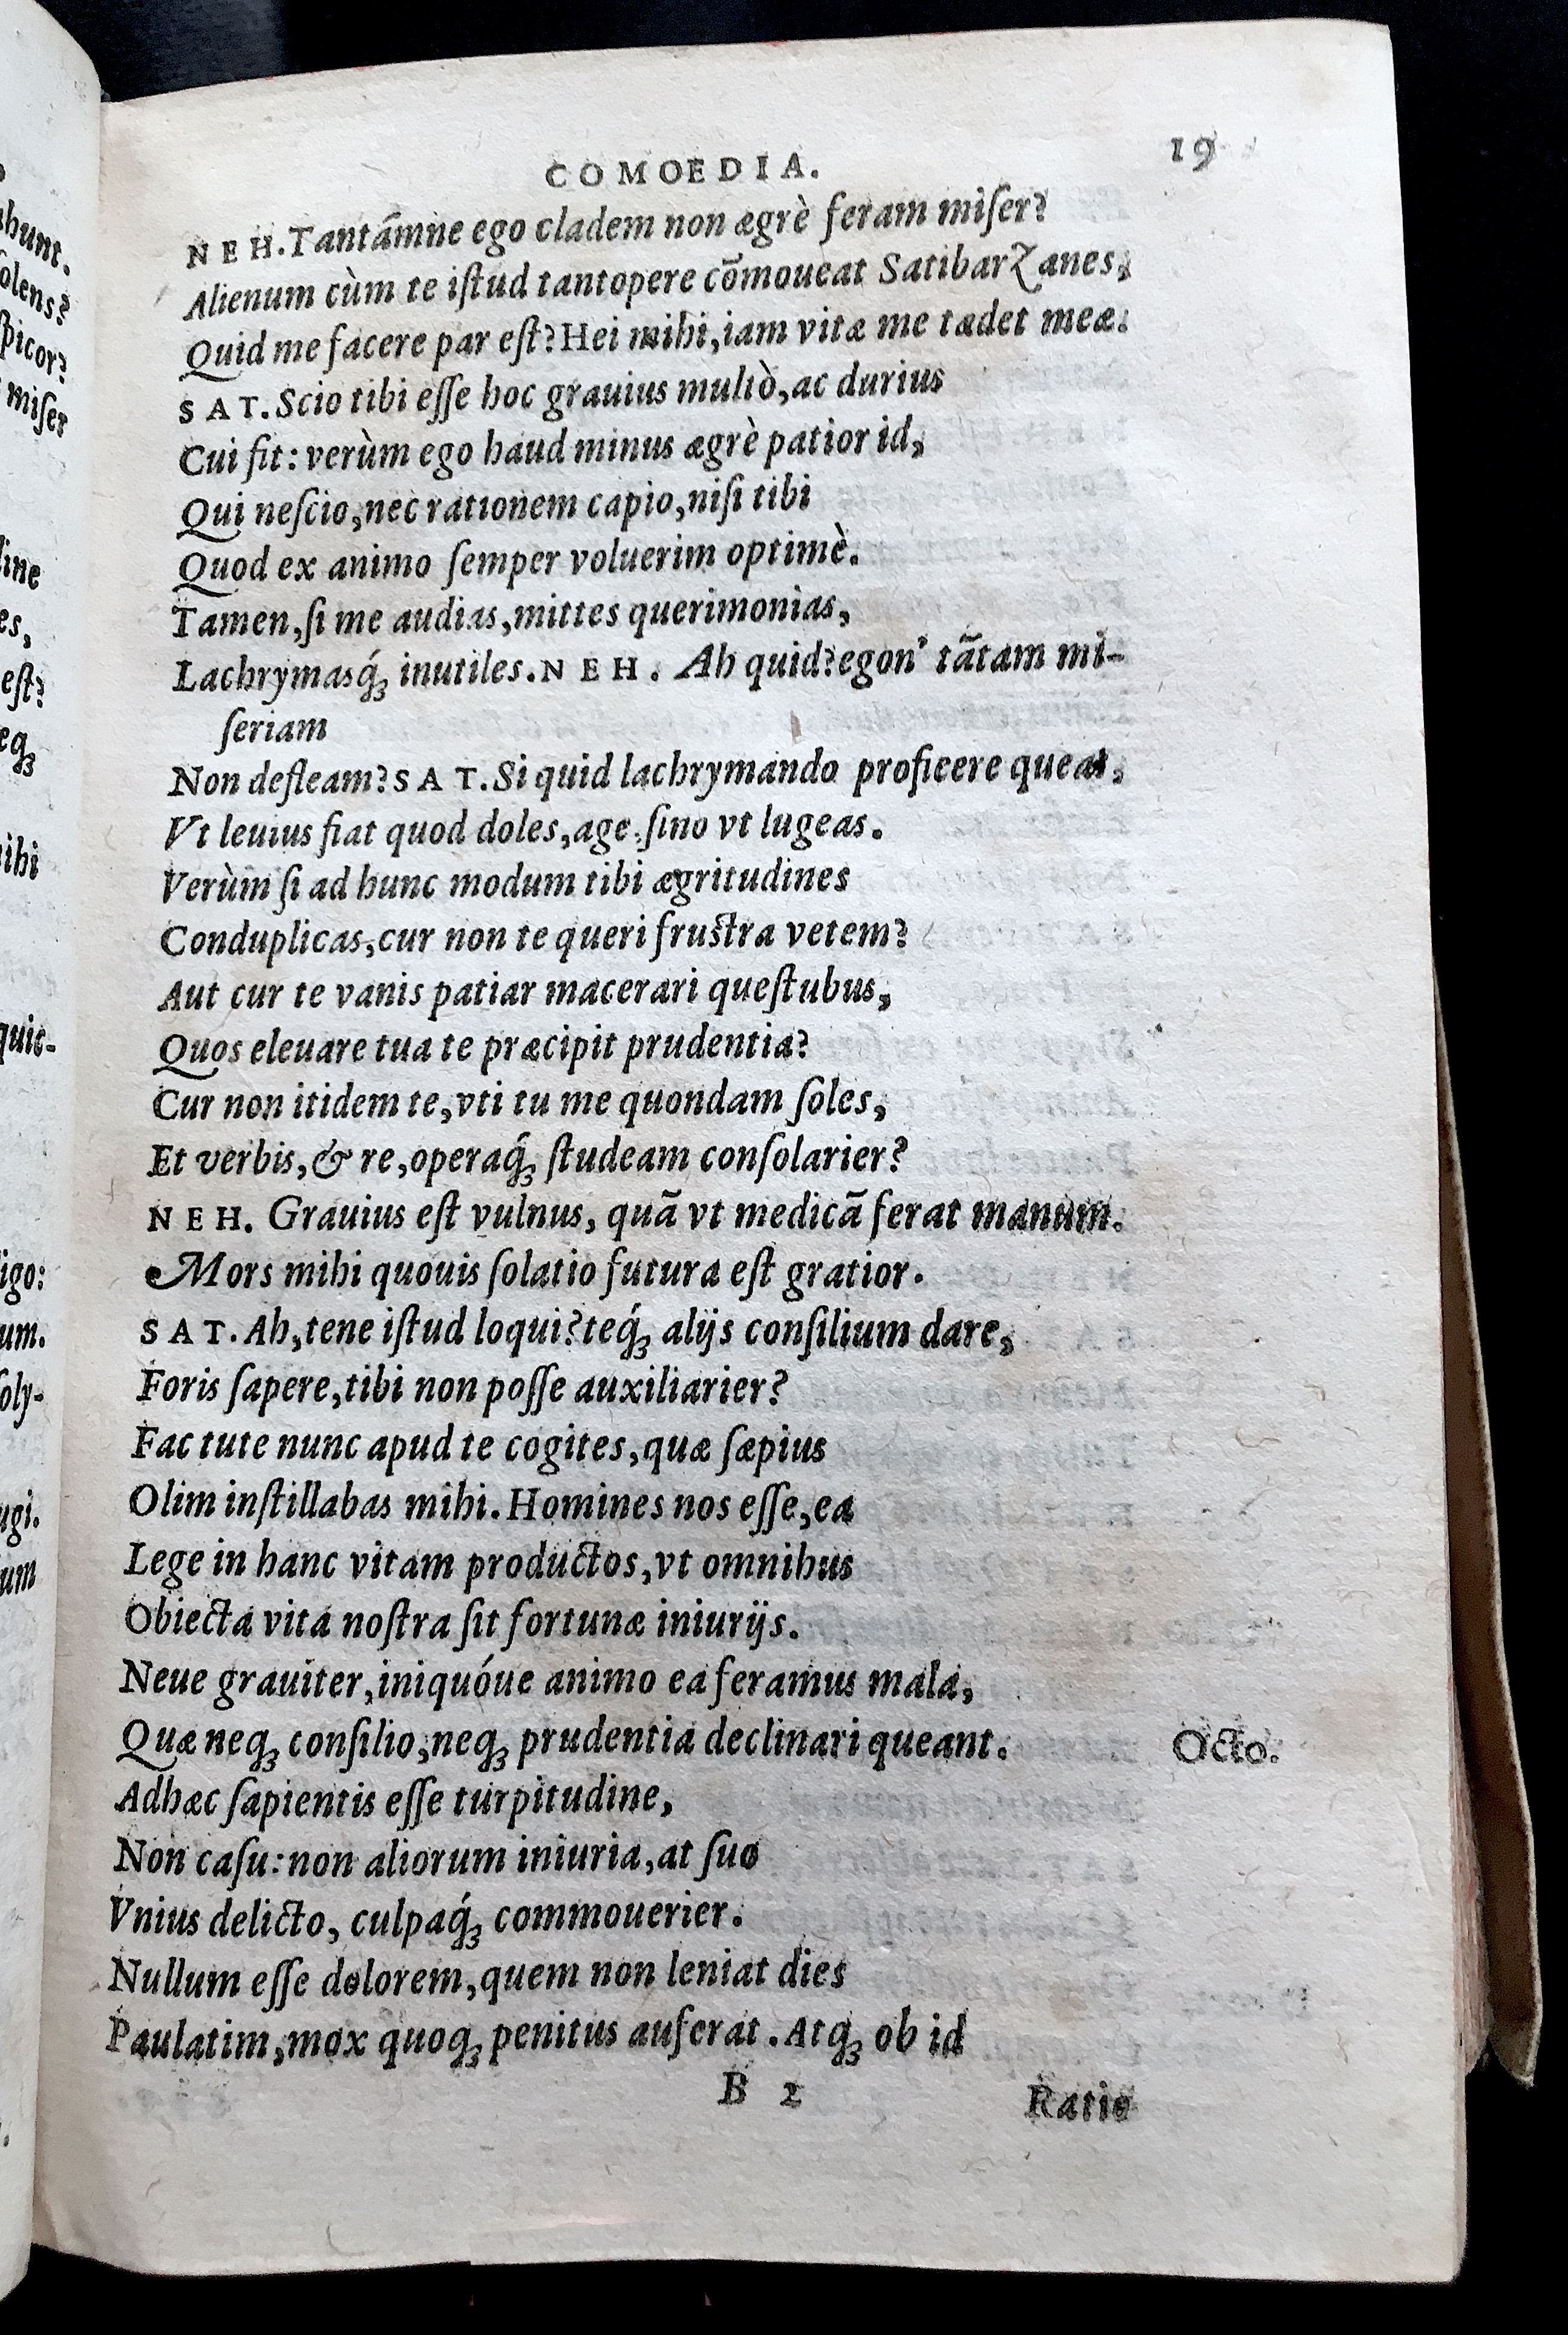 COMOEDIA. 19
NEH. Tantámne ego cladem non ægrè feram miſer?
Alienum cùm te iſtud tantopere cōmoueat Satibarzanes,
Quid me facere par eſt? Hei mihi, iam vitæ me tædet meæ.
SAT. Scio tibi eſſe hoc grauius multò, ac durius
Cui fit: verùm ego haud minus ægrè patior id,
Qui neſcio, nec rationem capio, niſi tibi
Quod ex animo ſemper voluerim optimè.
Tamen, ſi me audias, mittes querimonias,
Lachrymasq́ꝫ inutiles. NEH. Ah quid? egon' tātam mi-
ſeriam
Non defleam? SAT. Si quid lachrymando proficere queas,
Vt leuius fiat quod doles, age, ſino vt lugeas.
Verùm ſi ad hunc modum tibi ægritudines
Conduplicas, cur non te queri fruſtra vetem?
Aut cur te vanis patiar macerari queſtubus,
Quos eleuare tua te præcipit prudentia?
Cur non itidem te, vti tu me quondam ſoles,
Et verbis, & re, operaq́ꝫ ſtudeam conſolarier?
NEH. Grauius eſt vulnus, quā vt medicā ferat manum.
Mors mihi quouis ſolatio futura eſt gratior.
SAT. Ah, tene iſtud loqui? teq́ꝫ alijs conſilium dare,
Foris ſapere, tibi non poſſe auxiliarier?
Fac tute nunc apud te cogites, quæ ſæpius
Olim inſtillabas mihi. Homines nos eſſe, ea
Lege in hanc vitam productos, vt omnibus
Obiecta vita noſtra ſit fortunæ iniurijs.
Neue grauiter, iniquóue animo ea feramus mala,
Quæ neqꝫ conſilio, neqꝫ prudentia declinari queant. Octo.
Adhæc ſapientis eſſe turpitudine,
Non caſu: non aliorum iniuria, at ſuo
Vnius delicto, culpaq́ꝫ commouerier.
Nullum eſſe dolorem, quem non leniat dies
Paulatim, mox quoqꝫ penitus auferat. Atqꝫ ob id
B 2 Ratio